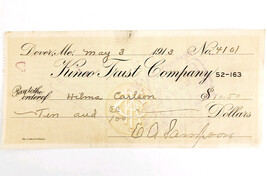 Dover, Mo. May 3 1913 No. 4101
Kinco Trust Company 52-163
Pay to the
order of Wilma Carlson $10.50
Ten and 50/100 Dollars